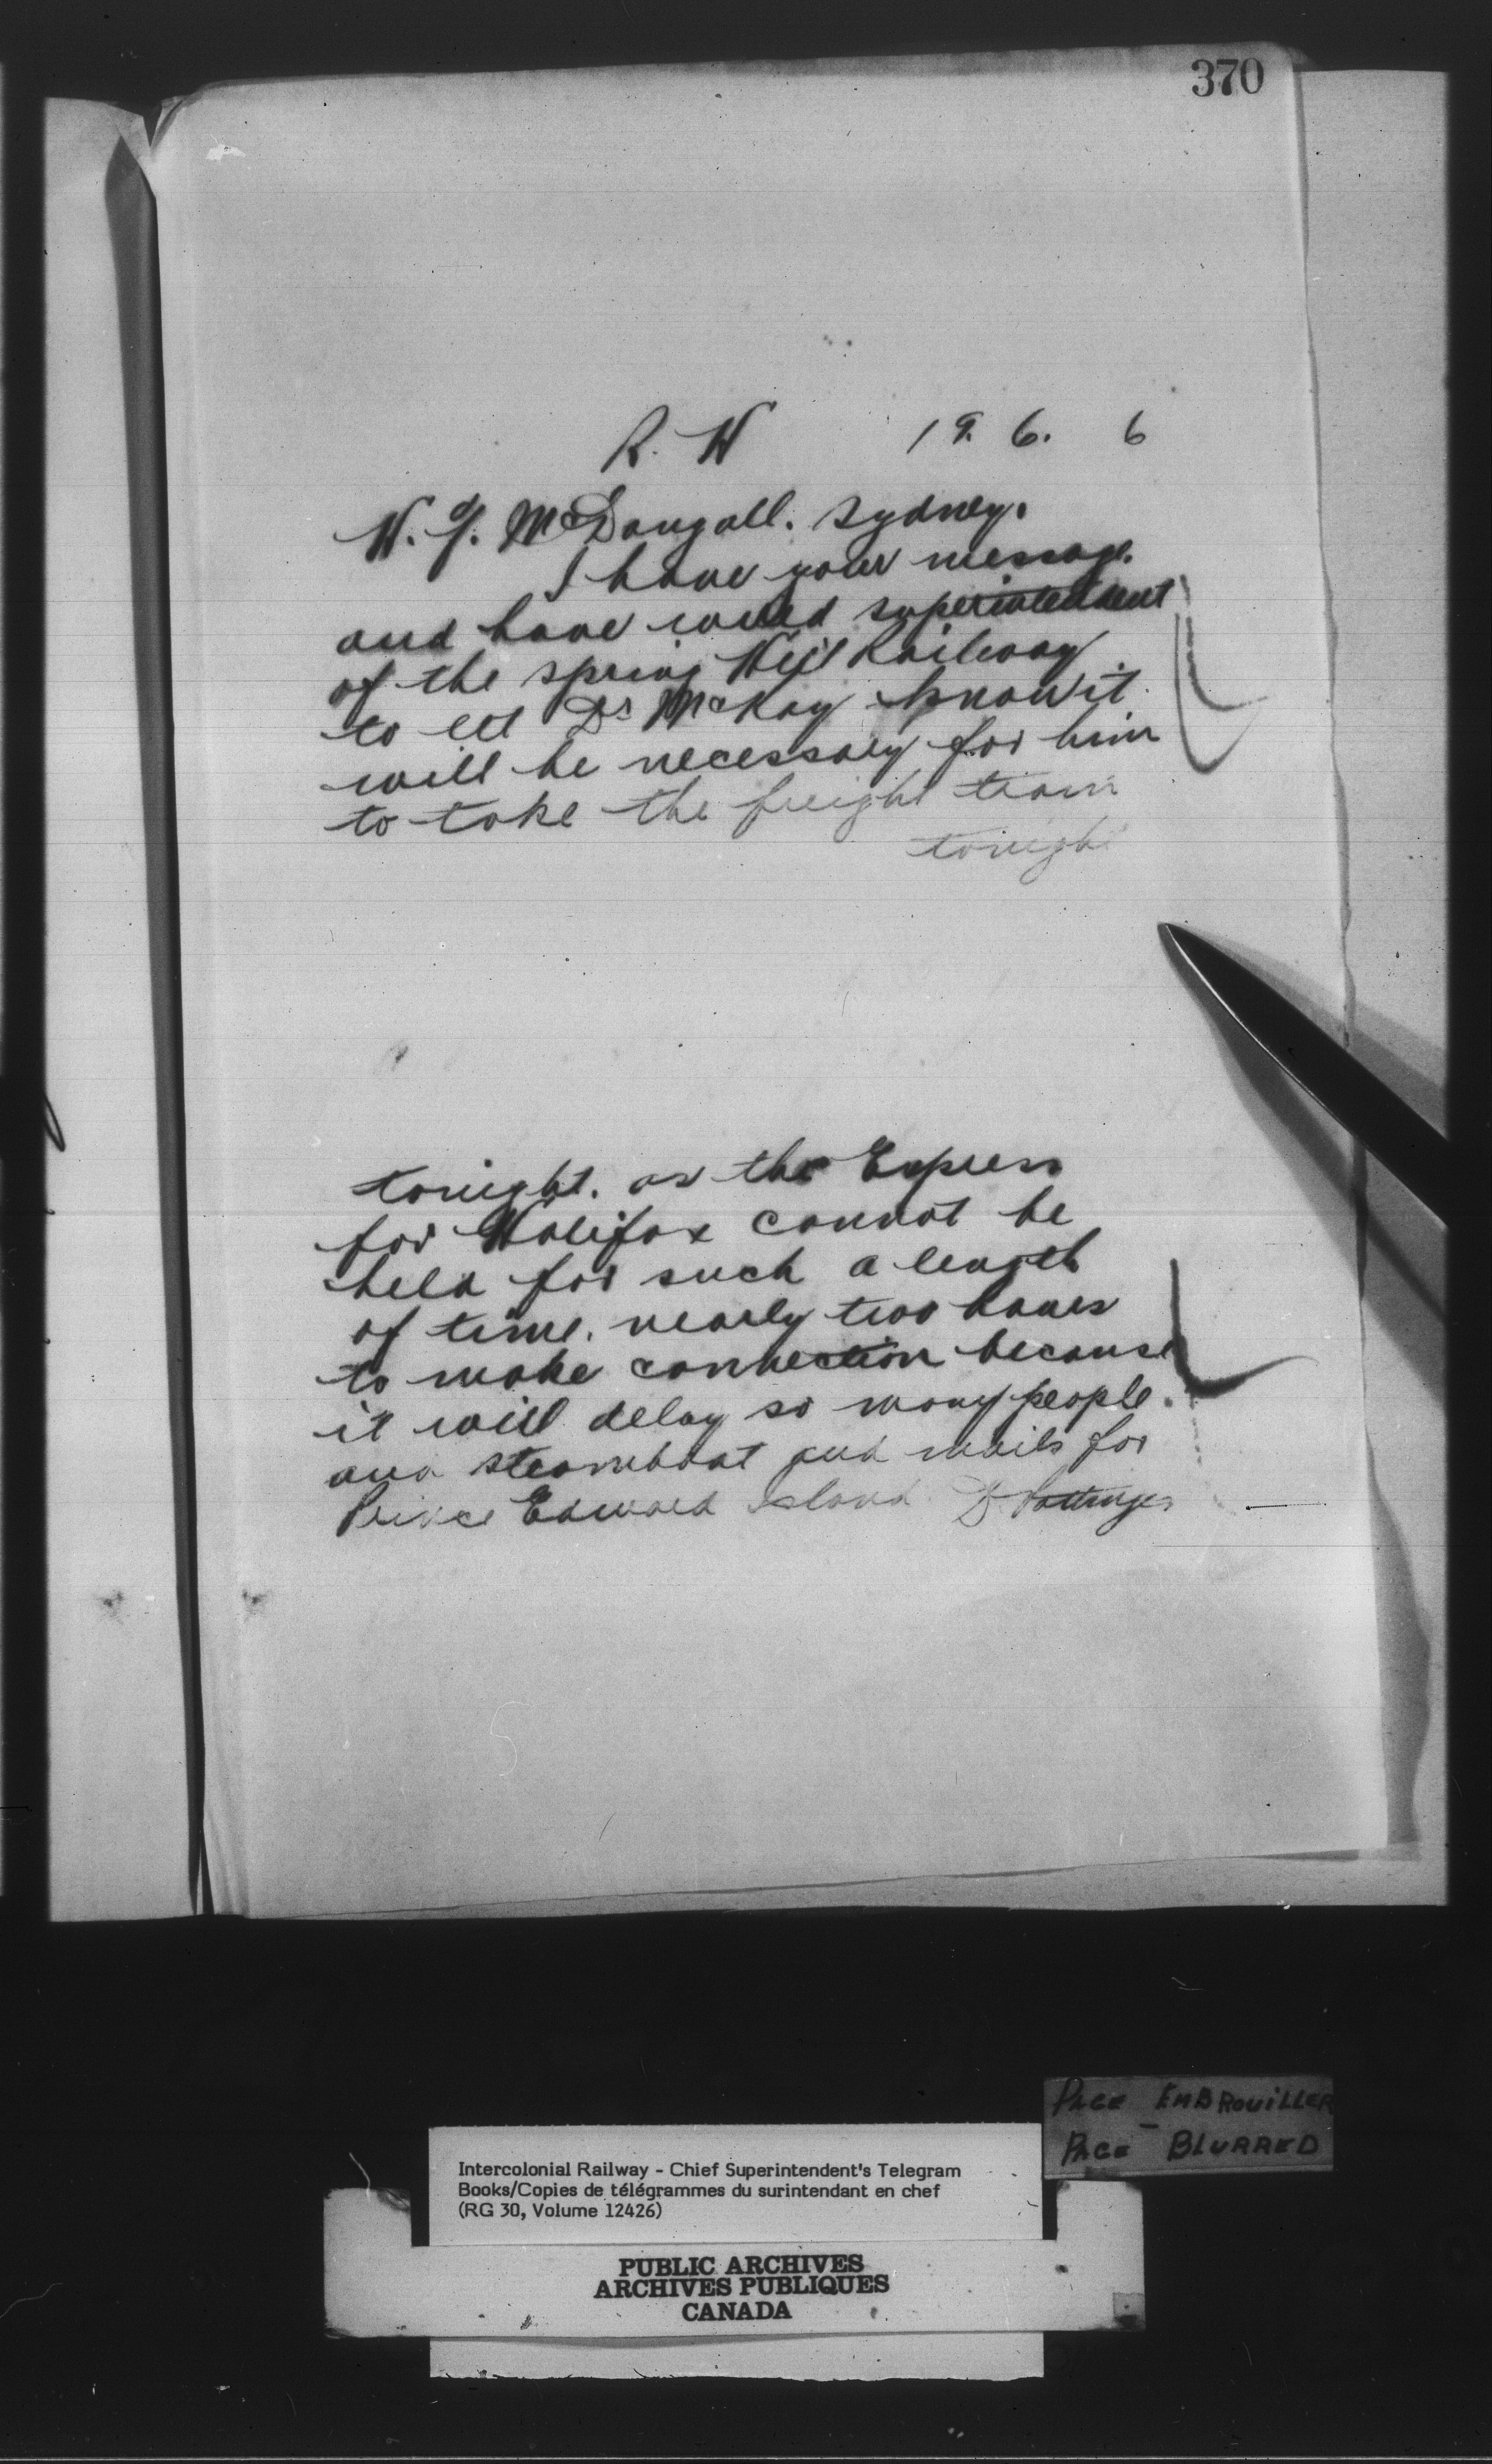 370
R. W 19. 6. 6
W. Y. McDougall. Sydney.
I have your message.
and have wired superintendent
of the spring Hill Railway
to let Dr McKay know it
will be necessary for him
to take the freight train
tonight
tonight. as the Express
for Halifax cannot be
held for such a length
of time. nearly two hours
to make connection because
it will delay so many people.
and steamboat and mails for
Prince Edward Island D Pottinger
PAGE EMBROUILLER
PAGE BLURRED
Intercolonial Railway - Chief Superintendent's Telegram
Books/Copies de télégrammes du surintendant en chef
(RG 30, Volume 12426)
PUBLIC ARCHIVES
ARCHIVES PUBLIQUES
CANADA